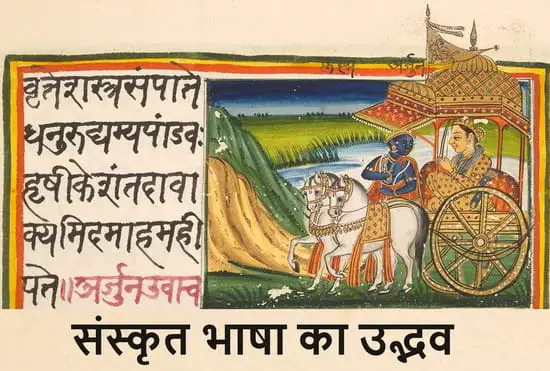 कृष्ण अर्जुन
वृत्तेशस्त्रसंपाते
धनुरुद्यम्यपांडवः
हृषीकेशंतदावा
क्यमिदमाहमही
पते॥अर्जुनउवाच
संस्कृत भाषा का उद्भव